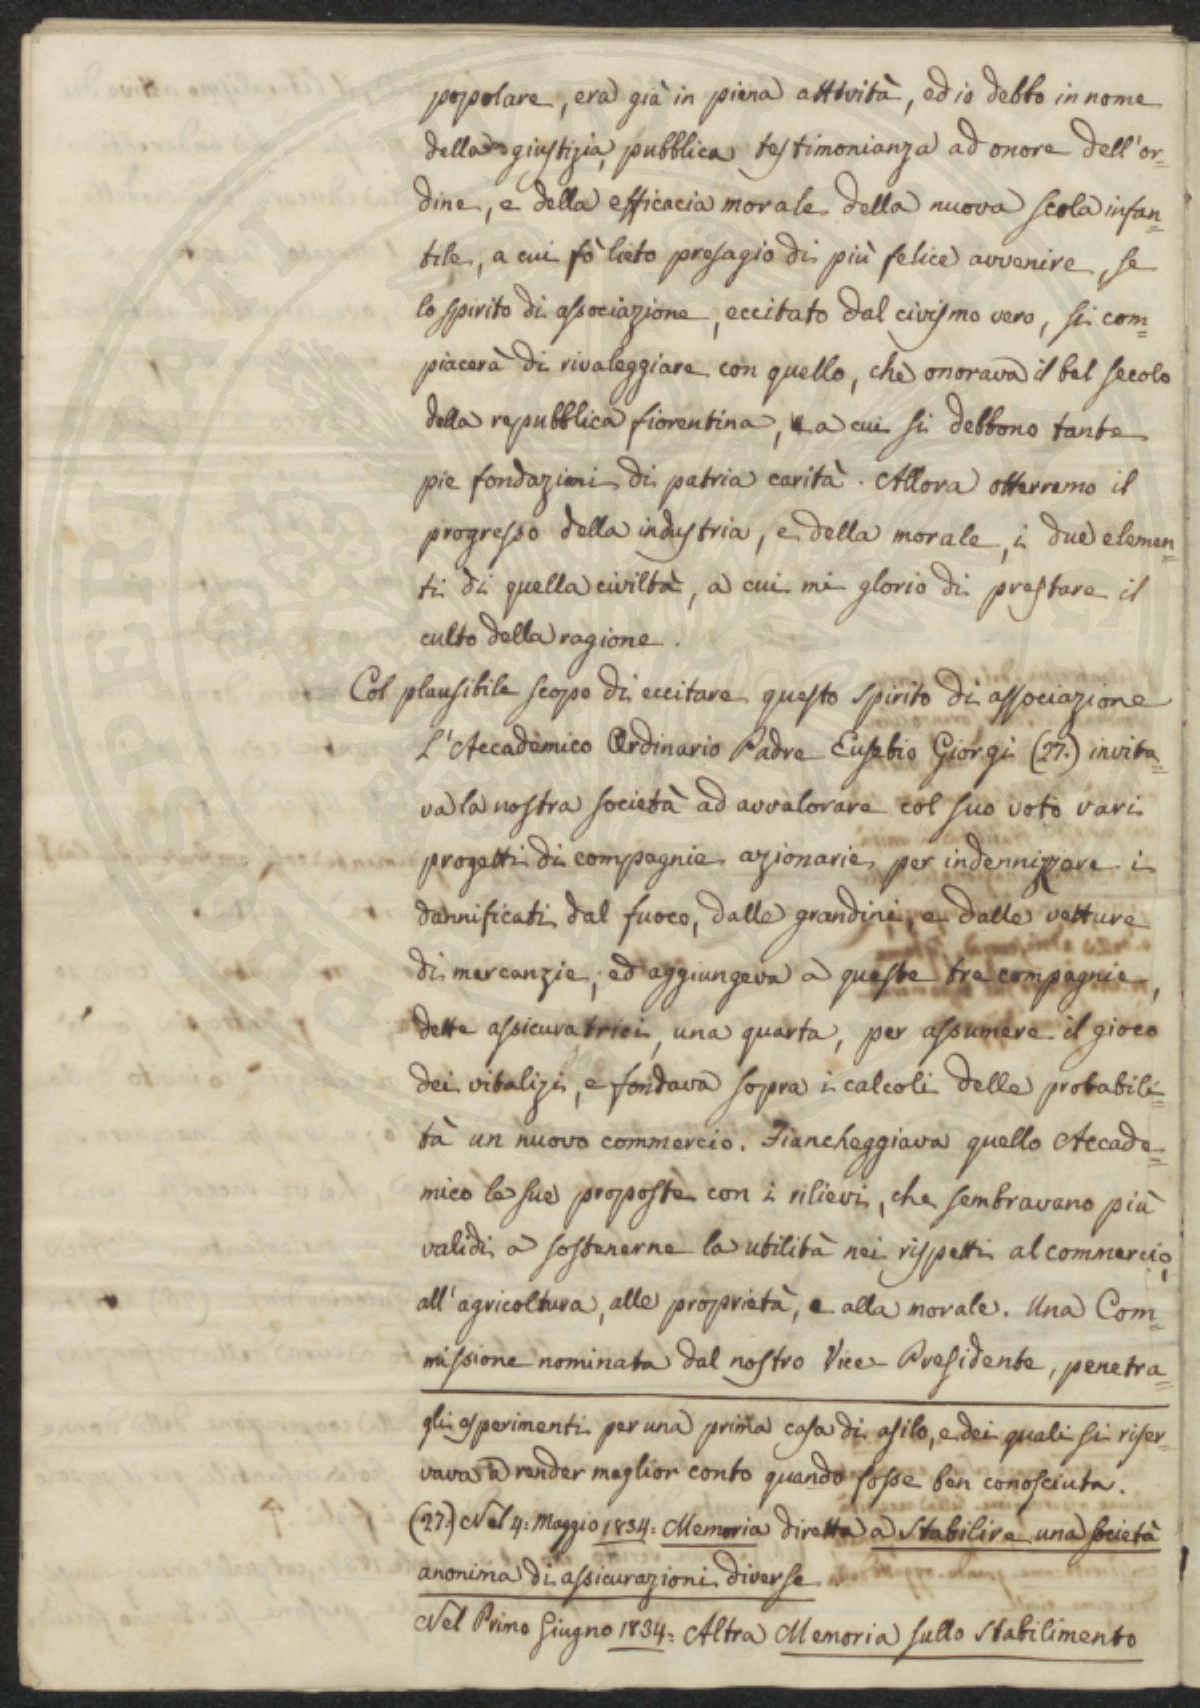 popolare, era già in piena attività, ed io debbo in nome
della giustizia, pubblica testimonianza ad onore dell'or=
dine, e della efficacia morale della nuova scola infan=
tile, a cui fò lieto presagio di più felice avvenire, se
lo spirito di associazione, eccitato dal civismo vero, si com=
piacerà di rivaleggiare con quello, che onorava il bel secolo
della repubblica fiorentina, e a cui si debbono tante
pie fondazioni di patria carità. Allora otterremo il
progresso della industria, e della morale, i due elemen=
ti di quella civiltà, a cui mi glorio di prestare il
culto della ragione.
Col plausibile scopo di eccitare questo spirito di associazione
L'Accademico Ordinario Padre Eusebio Giorgi (27.) invita=
va la nostra società ad avvalorare col suo voto vari
progetti di compagnie azionarie per indennizzare i
dannificati dal fuoco, dalle grandini, e dalle vetture
di mercanzie; ed aggiungeva a queste tre compagnie,
dette assicuratrici, una quarta, per assumere il gioco
dei vitalizi, e fondava sopra i calcoli delle probabili=
tà un nuovo commercio. Fiancheggiava quello Accade=
mico le sue proposte con i rilievi, che sembravano più
validi a sostenerne la utilità nei rispetti al commercio,
all'agricoltura, alle proprietà, e alla morale. Una Com=
missione nominata dal nostro Vice-Presidente, penetra=
gli esperimenti per una prima casa di asilo, e dei quali si riser=
vava a render meglior conto quando fosse ben conosciuta.
(27.) Nel 4: Maggio 1834: Memoria diretta a Stabilire una società
anonima di assicurazioni diverse.
Nel Primo Giugno 1834: Altra Memoria sullo stabilimento
PRESBITERI